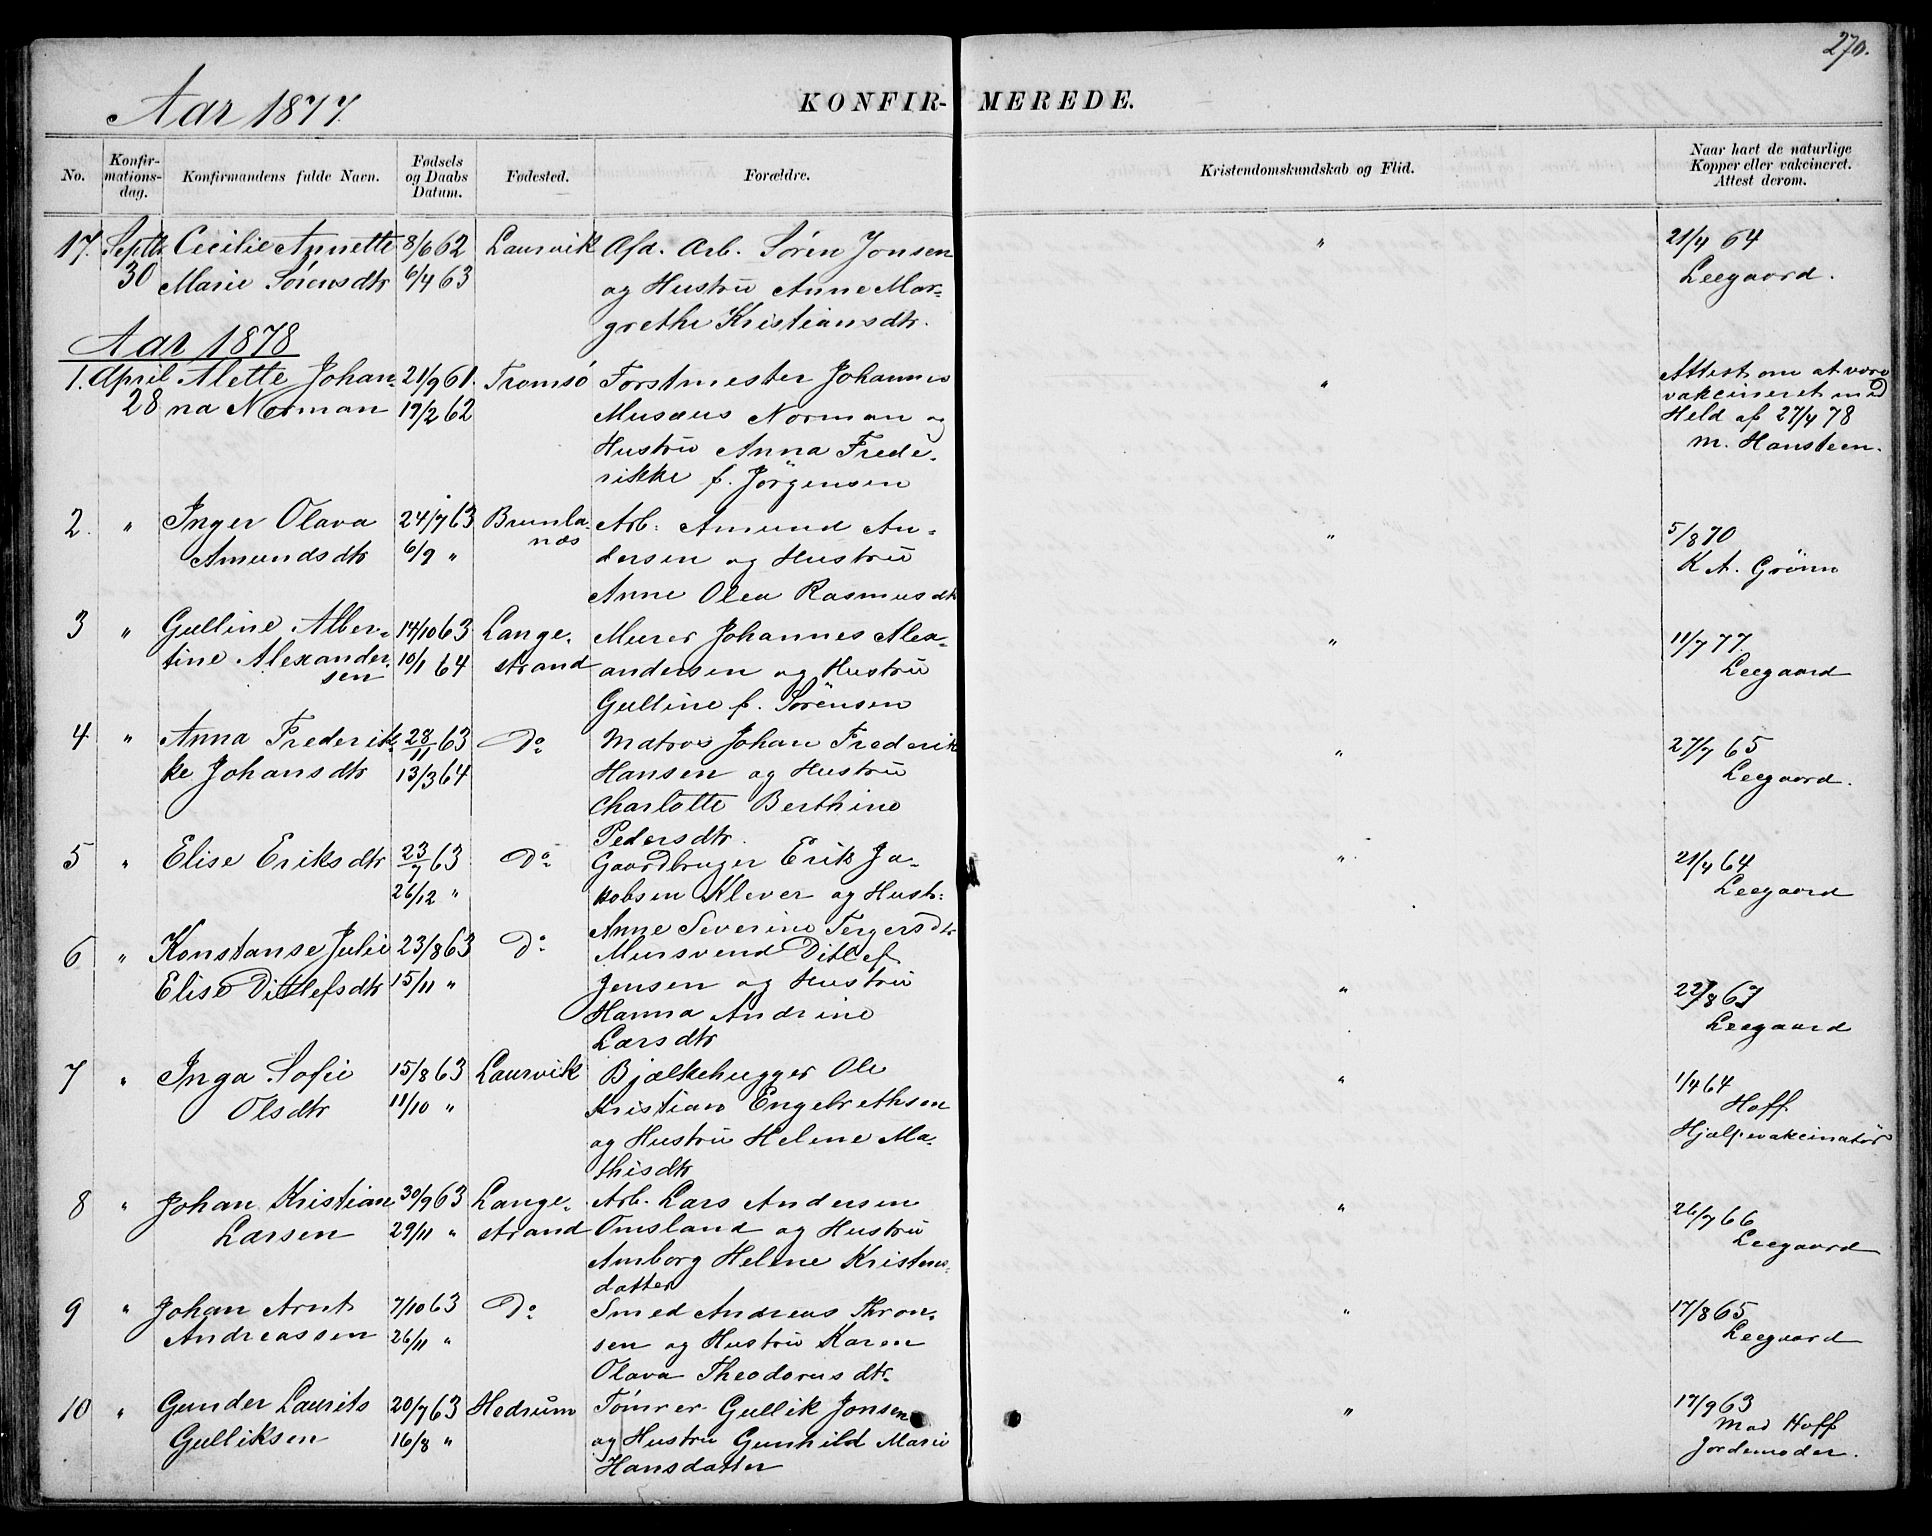 270.
Aar 1877.
KONFIR- MEREDE.
No. Konfir-mations-dag. Konfirmandens fulde Navn. Fødsels og Daabs Datum. Fødested. Forældre. Kristendomskundskab og Flid. Naar havt de naturlige Kopper eller vakcineret. Attest derom.
17. Septb. Cecilie Annette 8/6 62 Laurvik Afd. Arb. Sören Jonsen " 21/4 64
30 Marie Sörensdtr 6/4 63 og Hustru Anne Mar- Leegaard.
grethe Kristiansdtr.
Aar 1878
1. April Alette Johan- 21/9 61. Tromsö Forstmester Johannes " Attest om at være
28 na Norman 19/2 62 Musæus Norman og vakcineret med
Hustru Anna Frede- Held af 27/4 78
rikke f. Jörgensen M. Hansteen.
2. " Inger Olava 24/7 63 Brunla- Arb. Amund An- " 5/8 70
Amundsdtr 6/9 " næs dersen og Hustru K A. Grönn
Anne Olea Rasmusdtr
3 " Gulline Alber- 14/10 63 Lange- Murer Johannes Alex- " 11/7 77.
tine Alexander- 10/1 64 strand andersen og Hustru Leegaard
sen Gulline f. Sörensen
4 " Anna Frederik- 28/11 63 Do Matros Johan Frederik " 27/7 65
ke Johansdtr 13/3 64 Hansen og Hustru Leegaard.
Charlotte Berthine
Pedersdtr.
5 " Elise Eriksdtr 23/7 63 Do Gaardbruger Erik Ja- " 21/4 64
26/12 " kobsen Klever og Hustr: Leegaard
Anne Severine Tergersdtr
6 " Konstanse Julie 23/8 63 Do Mursvend Ditlef
Elise Ditlefsdtr 15/11 " Jensen og Hustru " 22/8 67
Hanna Andrine Leegaard
Larsdtr
7 " Inga Sofie 15/8 63 Laurvik Bjælkehugger Ole " 1/4 64
Olsdtr 11/10 " Kristian Engebrethsen Hoff
og Hustru Helene Ma- Hjælpevakcinatör
thisdtr
8 " Johan Kristian 30/9 63 Lange- Arb. Lars Andersen " 26/7 66
Larsen 29/11 " strand Omsland og Hustru Leegaard
Amborg Helene Kristens-
datter
9 " Johan Arnt 7/10 63 Do Smed Andreas Thron- " 17/8 65
Andreassen 26/11 " sen og Hustru Karen Leegaard
Olava Theodorusdtr.
10 " Gunder Laurits 20/7 63 Hedrum Tömrer Gullik Jonsen " 17/9 63
Gulliksen 16/8 " og Hustru Gunhild Marie Mad Hoff
Hansdatter Jordemoder.